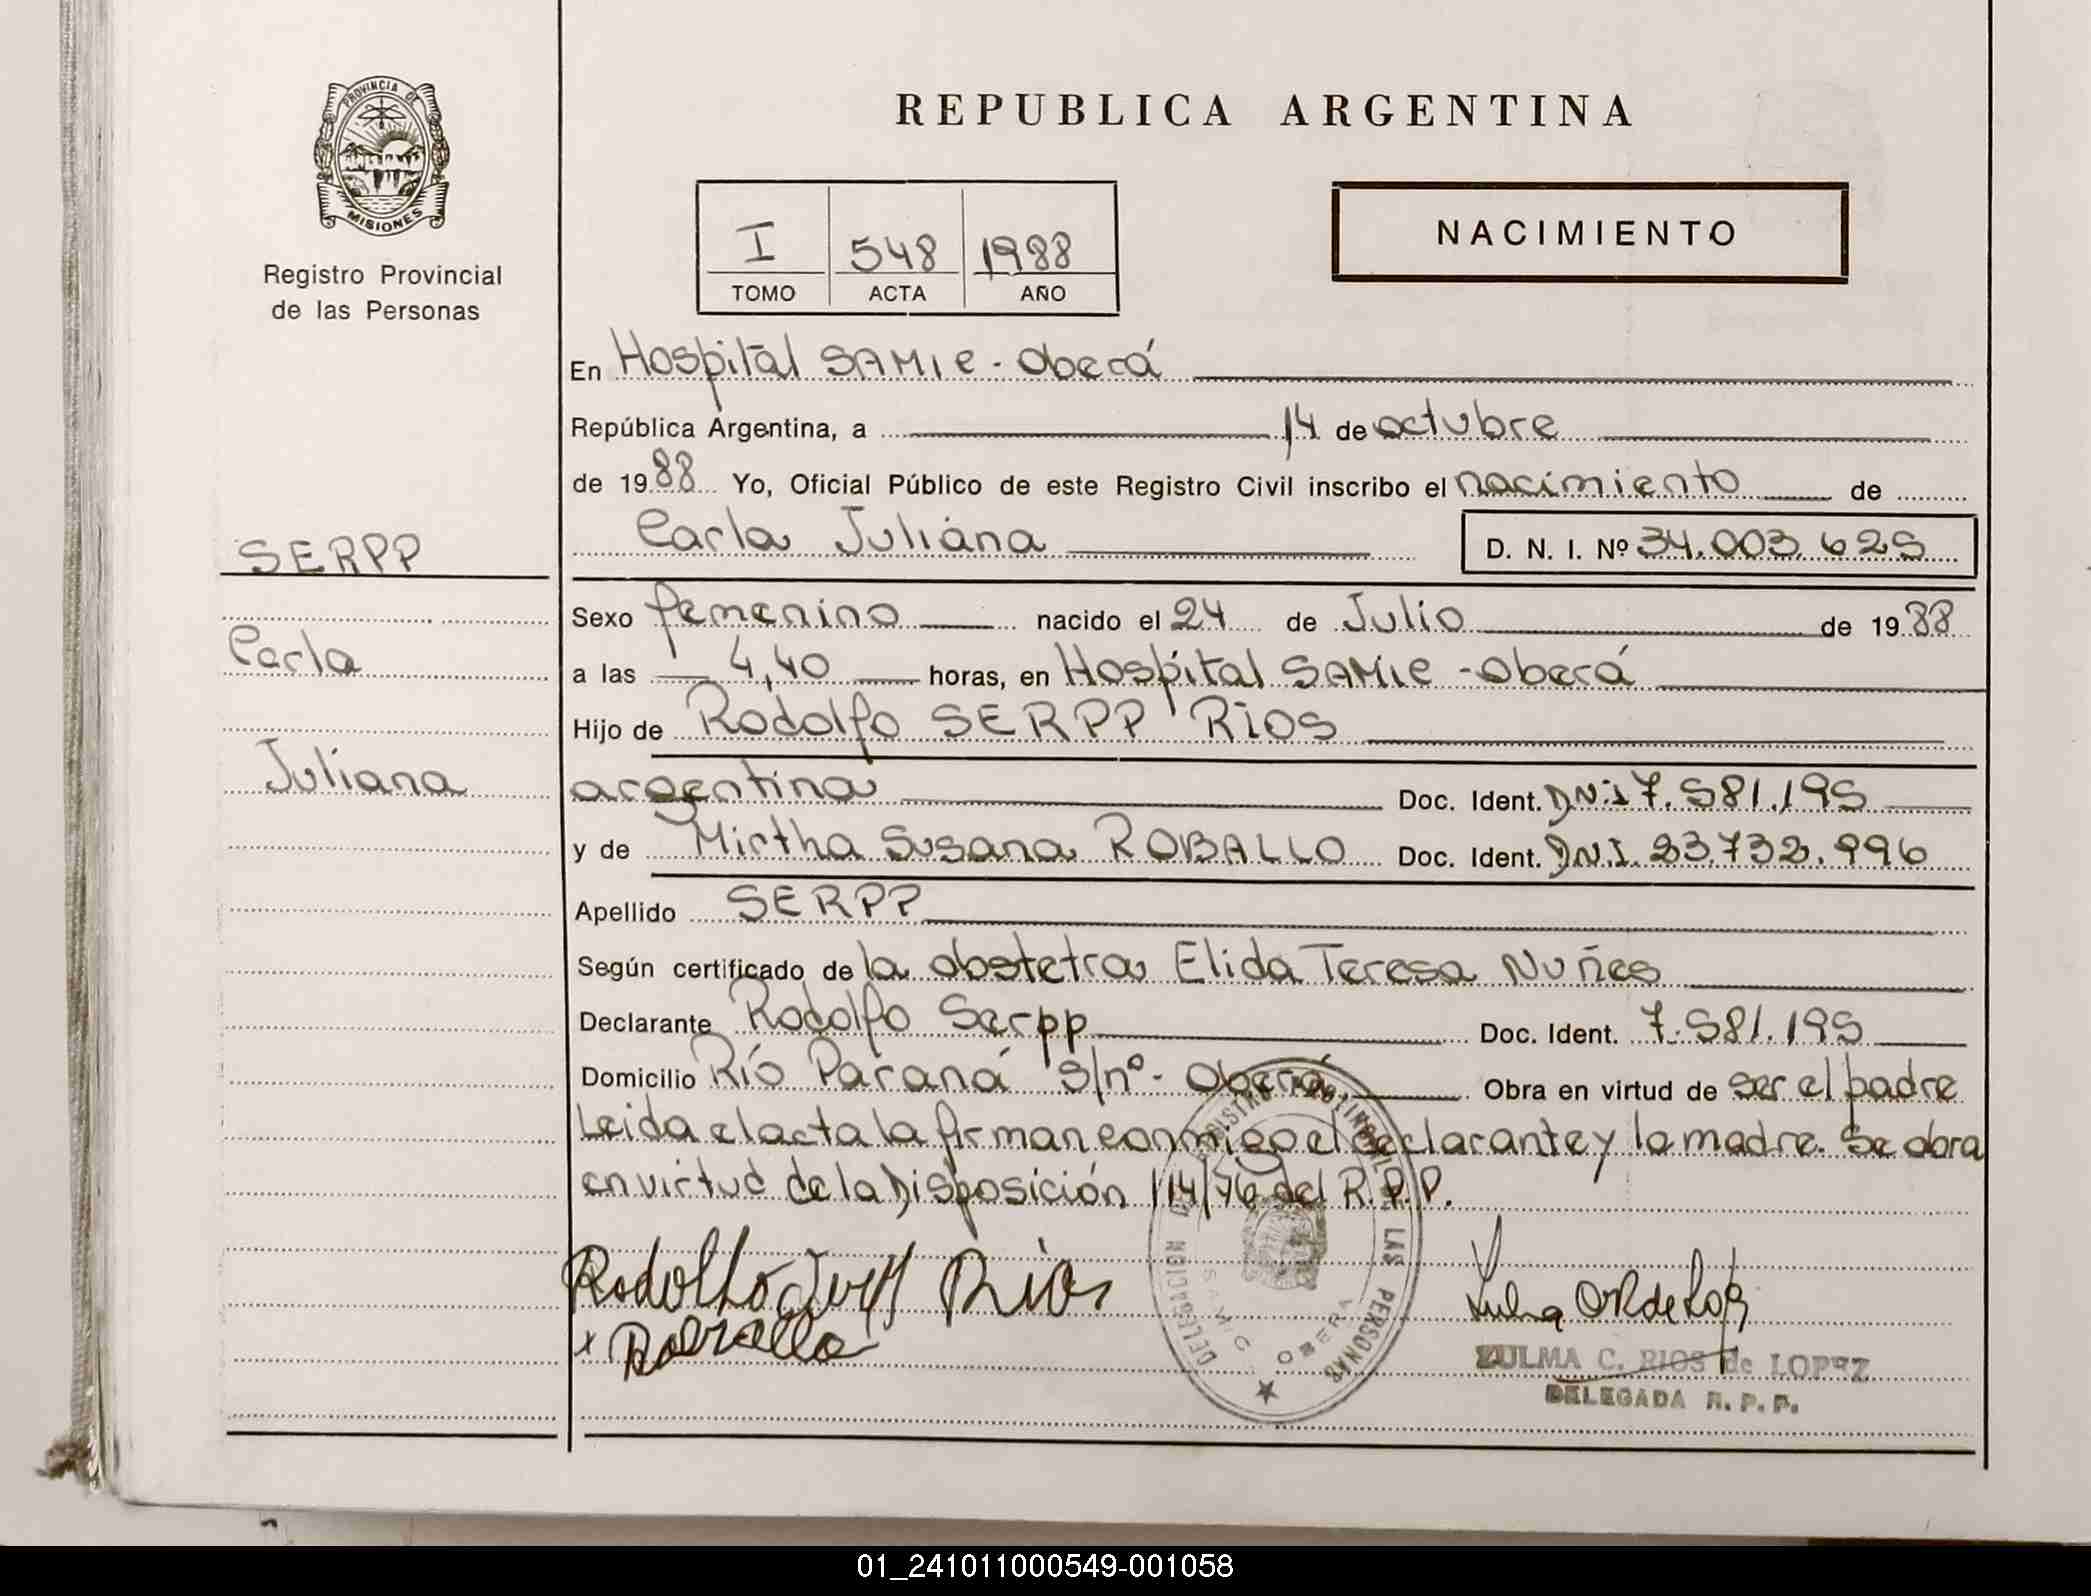 PROVINCIA DE
MISIONES
Registro Provincial
de las Personas
SERPP
Carla
Juliana
REPUBLICA ARGENTINA
I 548 1988
TOMO ACTA AÑO
NACIMIENTO
En Hospital SAMIC - Oberá
República Argentina, a 14 de octubre
de 1988 Yo, Oficial Público de este Registro Civil inscribo el nacimiento de
Carla Juliana D. N. I. Nº 34.003.625
Sexo femenino nacido el 24 de Julio de 1988
a las 4,40 horas, en Hospital SAMIC - Oberá
Hijo de Rodolfo SERPP RIOS
argentina Doc. Ident. DNI 7.581.195
y de Mirtha Susana ROBALLO Doc. Ident. DNI. 23.732.996
Apellido SERPP
Según certificado de la obstetra Elida Teresa Nuñes
Declarante Rodolfo Serpp Doc. Ident. 7.581.195
Domicilio Río Paraná s/nº - Oberá Obra en virtud de ser el padre
Leida el acta la firman conmigo el declarante y la madre. Se obra
en virtud de la Disposición 114/76 del R.P.P.
Rodolfo Serpp Rios
x Roballo
DELEGACION DE REGISTRO PROVINCIAL DE LAS PERSONAS
SAMIC OBERA
ZULMA C. RIOS de LOPEZ
DELEGADA R. P. P.
01_241011000549-001058